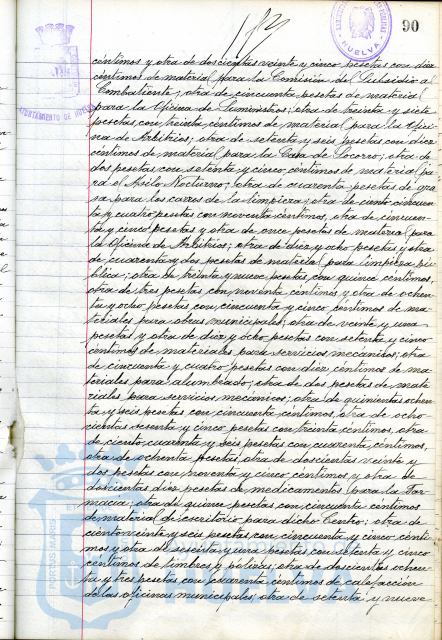 90
HUELVA
AYUNTAMIENTO DE HUELVA
céntimos y otra de doscientas veinte y cinco pesetas con diez
céntimos de material para la Comisión de Subsidio al
Combatiente; otra de cincuenta pesetas de material
para la Oficina de Suministros; otra de treinta y siete
pesetas con treinta céntimos de material para la Ofici-
na de Arbitrios; otra de setenta y seis pesetas con diez
céntimos de material para la Casa de Socorro; otra de
dos pesetas con setenta y cinco céntimos de material pa-
ra el Asilo Nocturno; otra de cuarenta pesetas de gra-
sa para los carros de la limpieza; otra de ciento cincuen-
ta y cuatro pesetas con noventa céntimos, otra de cincuen-
ta y cinco pesetas y otra de once pesetas de material para
la Oficina de Arbitrios; otra de diez y ocho pesetas y otra
de cuarenta y dos pesetas de material para limpieza pú-
blica; otra de treinta y nueve pesetas con quince céntimos,
otra de tres pesetas con noventa céntimos y otra de ochen-
ta y ocho pesetas con cincuenta y cinco céntimos de ma-
teriales para obras municipales; otra de veinte y una
pesetas y otra de diez y ocho pesetas con setenta y cinco
céntimos de materiales para servicios mecánicos; otra
de cincuenta y cuatro pesetas con diez céntimos de ma-
teriales para alumbrado; otra de dos pesetas de mate-
riales para servicios mecánicos; otra de quinientas ochen-
ta y seis pesetas con cincuenta céntimos, otra de ocho
cientas sesenta y cinco pesetas con treinta céntimos, otra
de ciento cuarenta y seis pesetas con cuarenta céntimos,
otra de ochenta pesetas, otra de doscientas veinte y
dos pesetas con noventa y cinco céntimos y otra de
doscientas diez pesetas de medicamentos para la Far-
macia; otra de quince pesetas con cincuenta céntimos
de material de escritorio para dicho Centro; otra de
ciento veinte y seis pesetas con cincuenta y cinco cénti-
mos y otra de sesenta y una pesetas con setenta y cinco
céntimos de timbres y pólizas; otra de doscientas ochen-
ta y tres pesetas con cuarenta céntimos de calefacción
de las oficinas municipales; otra de setenta y nueve
PORTUS MARIS